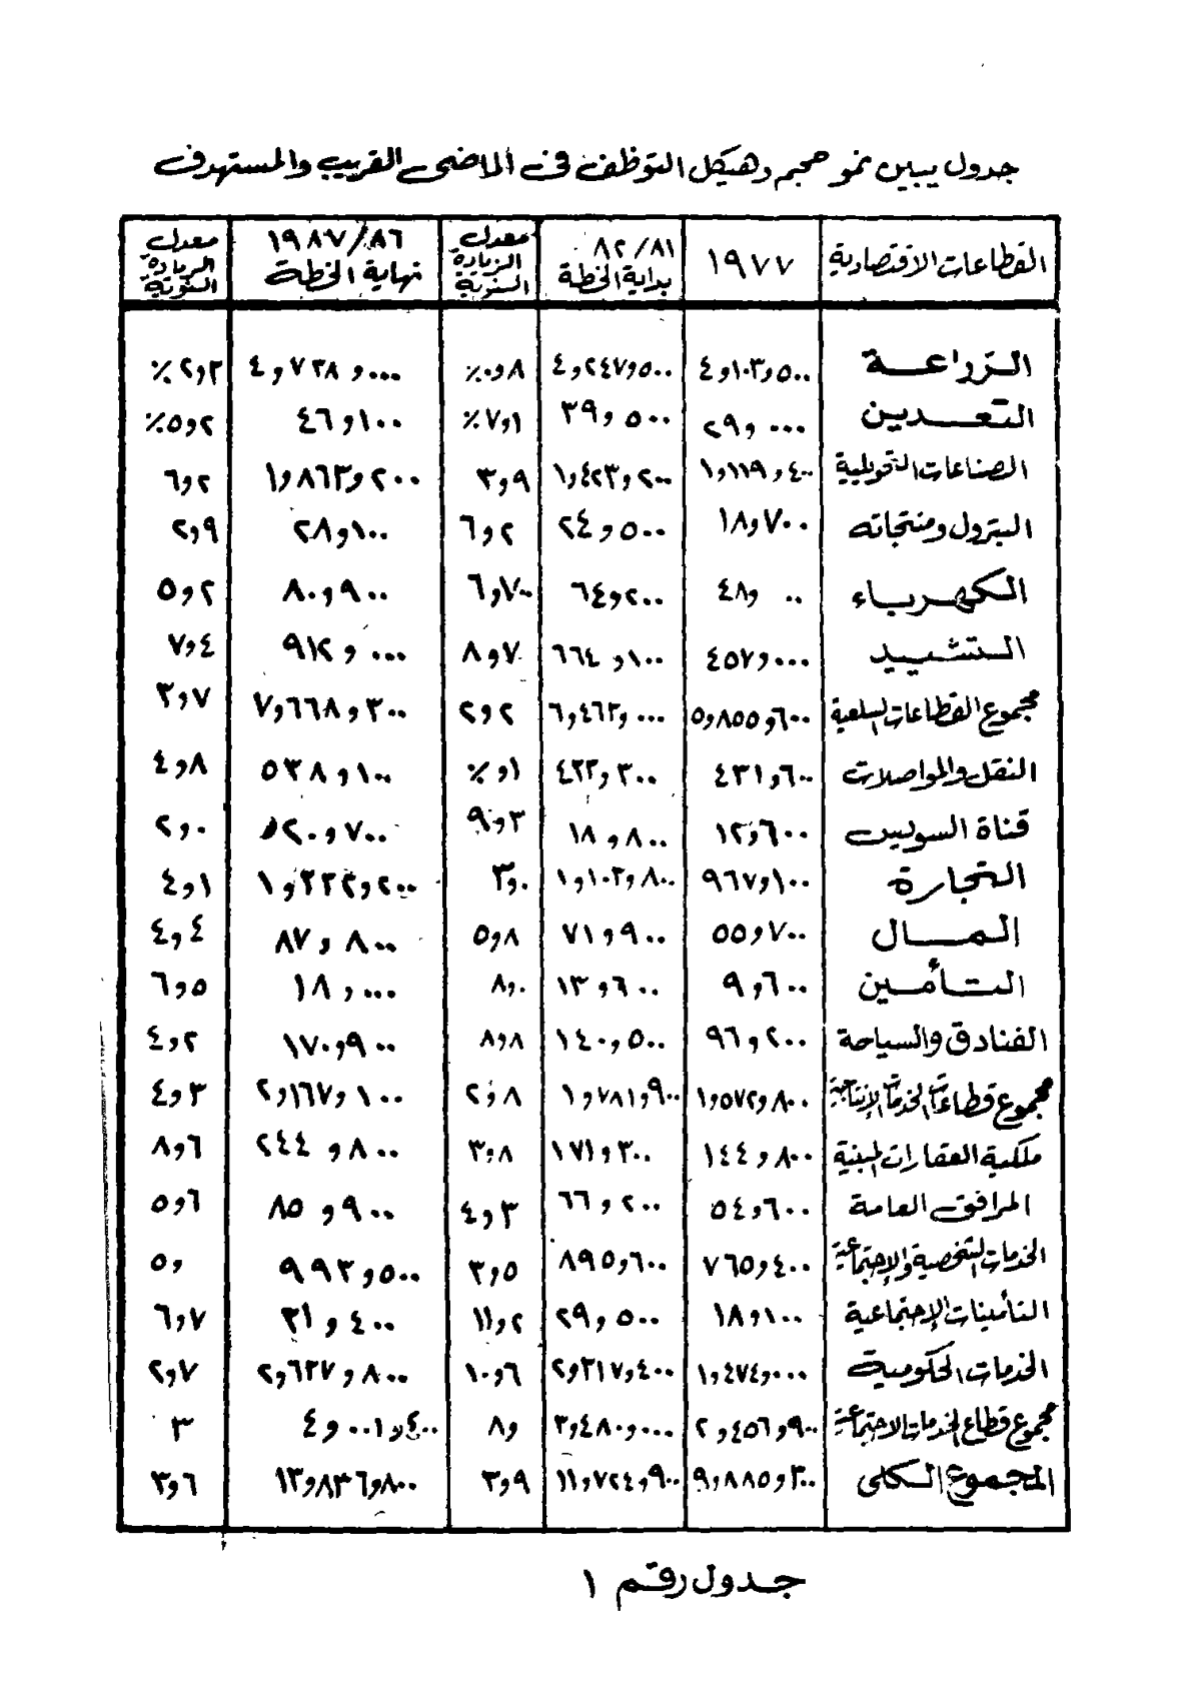 جدول يبين نمو حجم وهيكل التوظف فى الماضى القريب والمستهدف
القطاعات الاقتصادية ١٩٧٧ ٨٢/٨١ بداية الخطة معدل الزيادة السنوية ١٩٨٧/٨٦ نهاية الخطة معدل الزيادة السنوية
الزراعة ٤و١٠٣و٥٠٠ ٤و٢٤٧و٥٠٠ ٠و٨٪ ٤و٧٣٨و٠٠٠ ٢و٣٪
التعدين ٢٩و٠٠٠ ٣٩و٥٠٠ ٧و١٪ ٤٦و١٠٠ ٥و٢٪
الصناعات التحويلية ١و١١٩و٤٠٠ ١و٤٢٣و٢٠٠ ٣و٩ ١و٨٦٣و٢٠٠ ٦و٢
البترول ومنتجاته ١٨و٧٠٠ ٢٤و٥٠٠ ٦و٢ ٢٨و١٠٠ ٢و٩
الكهرباء ٤٨و٠٠ ٦٤و٢٠٠ ٦و٧٠ ٨٠و٩٠٠ ٥و٢
التشييد ٤٥٧و٠٠٠ ٦٦٤و١٠٠ ٨و٧ ٩١٢و٠٠٠ ٧و٤
مجموع القطاعات السلعية ٥و٨٥٥و٦٠٠ ٦و٤٦٣و٠٠٠ ٢و٢ ٧و٦٦٨و٣٠٠ ٣و٧
النقل والمواصلات ٤٣١و٦٠٠ ٤٢٢و٣٠٠ و١٪ ٥٣٨و١٠٠ ٤و٨
قناة السويس ١٢و٦٠٠ ١٨و٨٠٠ ٩و٣ ٢٠و٧٠٠ ٢و٠
التجارة ٩٦٧و١٠٠ ١و١٠٢و٨٠٠ ٣و٠ ١و٢٣٢و٢٠٠ ٤و١
المال ٥٥و٧٠٠ ٧١و٩٠٠ ٥و٨ ٨٧و٨٠٠ ٤و٤
التأمين ٩و٦٠٠ ١٣و٦٠٠ ٨و٠ ١٨و٠٠٠ ٦و٥
الفنادق والسياحة ٩٦و٢٠٠ ١٤٠و٥٠٠ ٨و٨ ١٧٠و٩٠٠ ٤و٢
مجموع قطاعات الخدمات الإنتاجية ١و٥٧٢و٨٠٠ ١و٧٨١و٩٠٠ ٢و٨ ٢و١٦٧و١٠٠ ٤و٣
ملكية العقارات المبنية ١٤٤و٨٠٠ ١٧١و٣٠٠ ٣و٨ ٢٤٤و٨٠٠ ٨و٦
المرافق العامة ٥٤و٦٠٠ ٦٦و٢٠٠ ٤و٣ ٨٥و٩٠٠ ٥و٦
الخدمات الشخصية والإجتماعية ٧٦٥و٤٠٠ ٨٩٥و٦٠٠ ٣و٥ ٩٩٣و٥٠٠ و٥
التأمينات الإجتماعية ١٨و١٠٠ ٢٩و٥٠٠ ١١و٢ ٣١و٤٠٠ ٦و٧
الخدمات الحكومية ١و٤٧٤و٠٠٠ ٢و٣١٧و٤٠٠ ١٠و٦ ٢و٦٢٧و٨٠٠ ٢و٧
مجموع قطاع الخدمات الاجتماعية ٢و٤٥٦و٩٠٠ ٣و٤٨٠و٠٠٠ و٨ ٤و٠٠١و٤٠٠ ٣
المجموع الكلى ٩و٨٨٥و٣٠٠ ١١و٧٢٤و٩٠٠ ٣و٩ ١٣و٨٣٦و٨٠٠ ٣و٦
جدول رقم ١